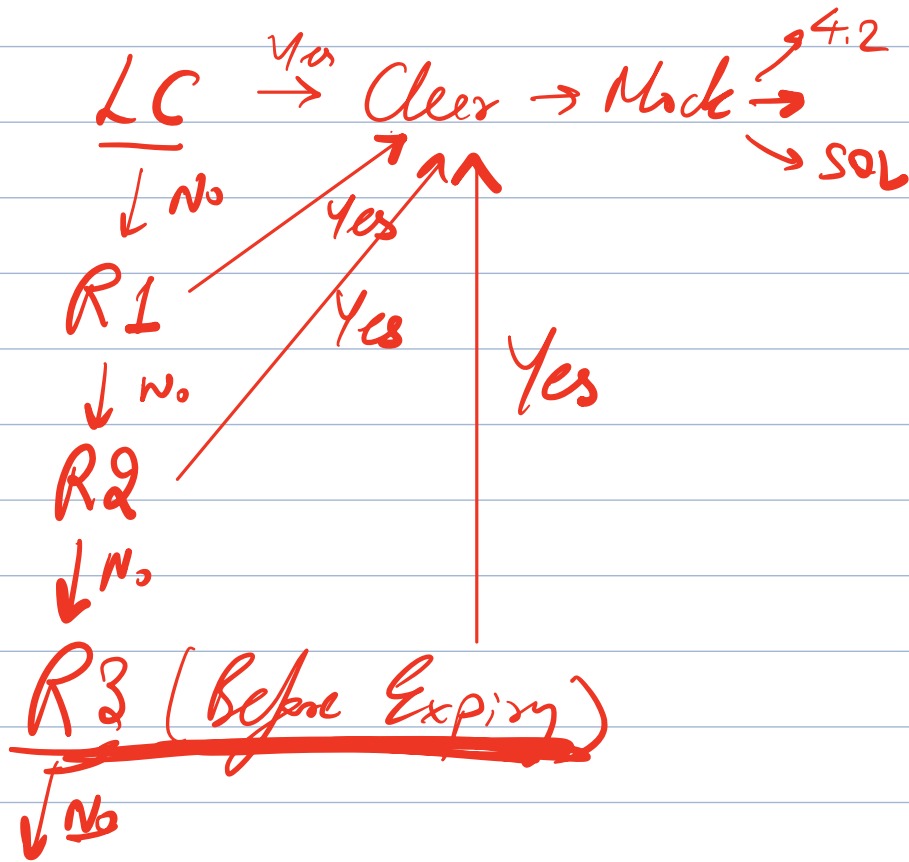 4.2
LC Yes Clear → Mock →
SOL
No
Yes
R1
Yes
No
Yes
R2
No
R3 (Before Expiry)
No